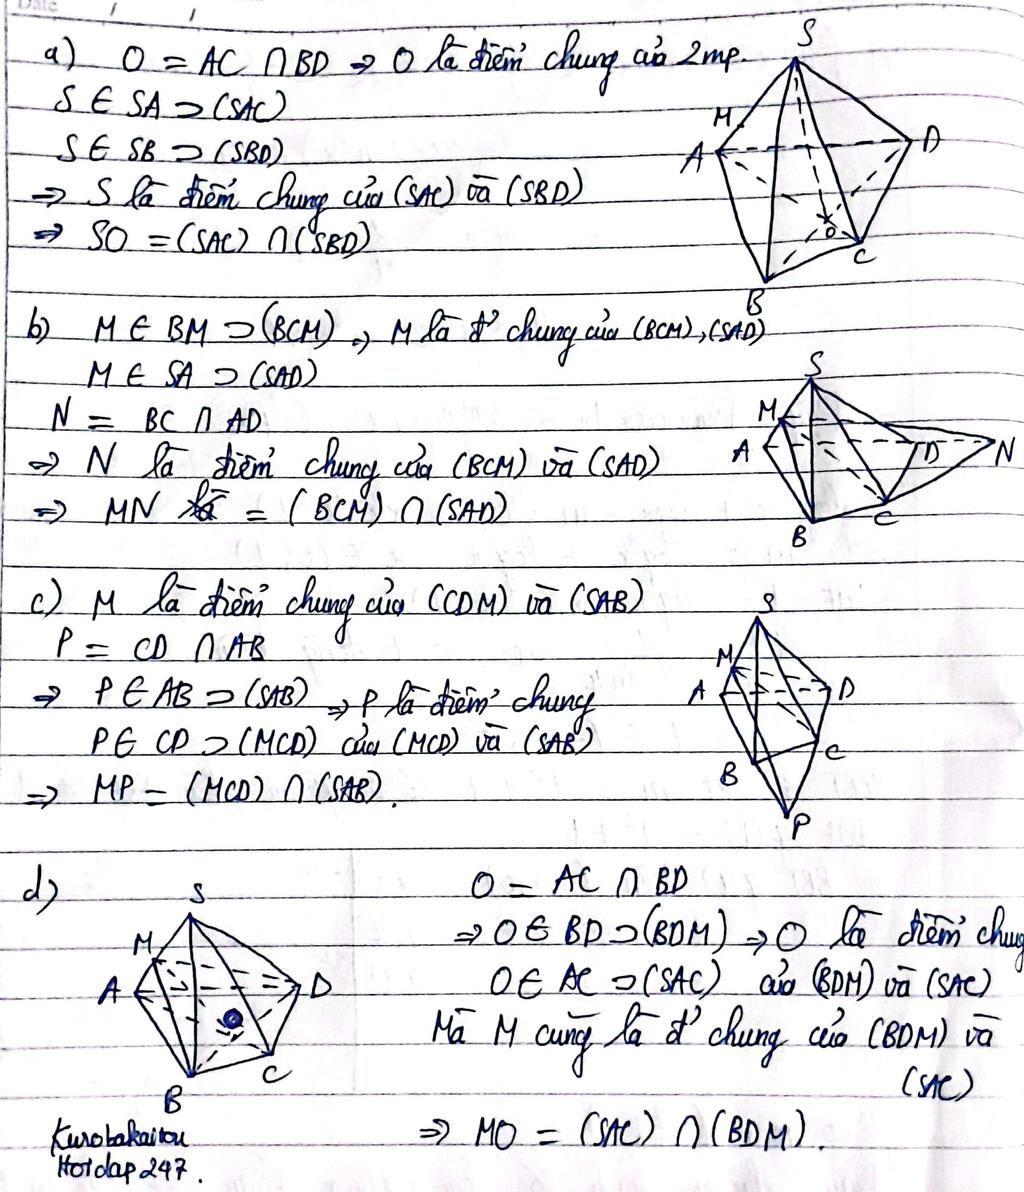 Date / /
a) O = AC ∩ BD ⇒ O là điểm chung của 2mp.
S ∈ SA ⊃ (SAC)
S ∈ SB ⊃ (SBD)
⇒ S là điểm chung của (SAC) và (SBD)
⇒ SO = (SAC) ∩ (SBD)
S
M
A
D
O
C
B
b) M ∈ BM ⊃ (BCM) ⇒ M là đ' chung của (BCM), (SAD)
M ∈ SA ⊃ (SAD)
N = BC ∩ AD
⇒ N là điểm chung của (BCM) và (SAD)
⇒ MN = (BCM) ∩ (SAD)
S
M
A
D
N
C
B
c) M là điểm chung của (CDM) và (SAB)
P = CD ∩ AB
⇒ P ∈ AB ⊃ (SAB) ⇒ P là điểm chung
P ∈ CD ⊃ (MCD) của (MCD) và (SAB)
⇒ MP = (MCD) ∩ (SAB).
S
M
A
D
C
B
P
d)
S
M
A
D
C
B
O = AC ∩ BD
⇒ O ∈ BD ⊃ (BDM) ⇒ O là điểm chung
O ∈ AC ⊃ (SAC) của (BDM) và (SAC)
Mà M cũng là đ' chung của (BDM) và
(SAC)
⇒ MO = (SAC) ∩ (BDM).
Kurobakaitou
Hoidap247.